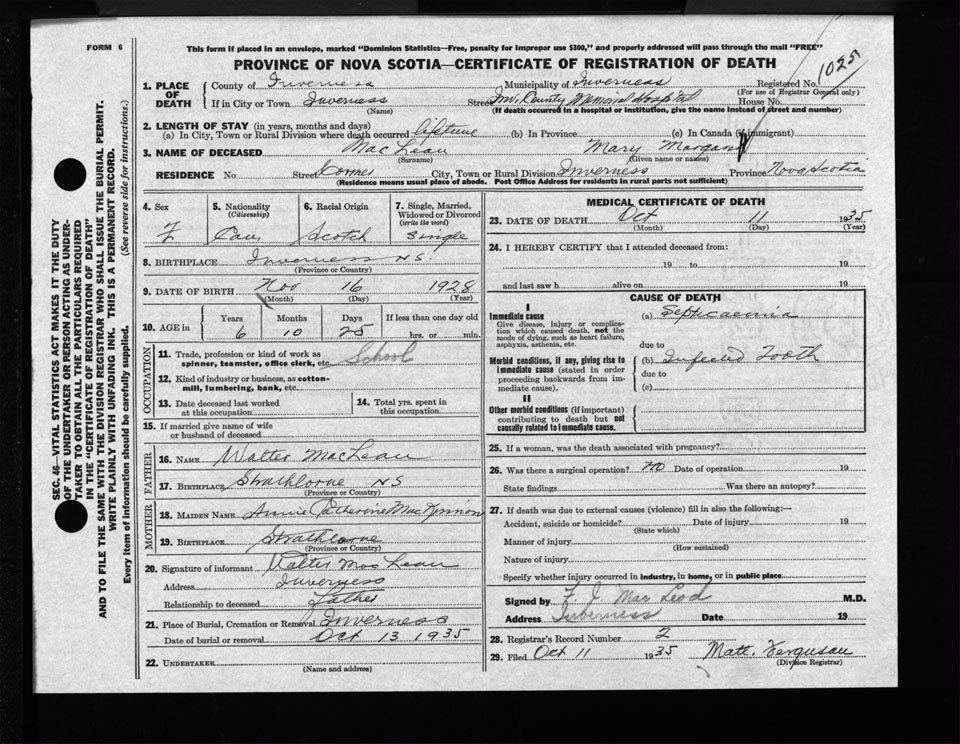 FORM 6
This form if placed in an envelope, marked "Dominion Statistics—Free, penalty for improper use $300," and properly addressed will pass through the mail "FREE"
PROVINCE OF NOVA SCOTIA—CERTIFICATE OF REGISTRATION OF DEATH
1025
1. PLACE OF DEATH
County of Inverness Municipality of Inverness Registered No.
(For use of Registrar General only)
If in City or Town Inverness Street Inv. County Memorial Hospital House No.
(Name) (If death occurred in a hospital or institution, give the name instead of street and number)
2. LENGTH OF STAY (in years, months and days)
(a) In City, Town or Rural Division where death occurred lifetime (b) In Province (c) In Canada (if immigrant)
3. NAME OF DECEASED Mac Lean Mary Morgan
(Surname) (Given name or names)
RESIDENCE No. Street City, Town or Rural Division Inverness Province Nova Scotia
(Residence means usual place of abode. Post Office Address for residents in rural parts not sufficient)
4. Sex
F
5. Nationality
(Citizenship)
Can
6. Racial Origin
Scotch
7. Single, Married, Widowed or Divorced
(write the word)
Single
8. BIRTHPLACE Inverness N.S.
(Province or Country)
9. DATE OF BIRTH Nov 16 1928
(Month) (Day) (Year)
10. AGE in
Years Months Days If less than one day old
6 10 25 hrs. or min.
OCCUPATION
11. Trade, profession or kind of work as spinner, teamster, office clerk, etc. School
12. Kind of industry or business, as cotton-mill, lumbering, bank, etc.
13. Date deceased last worked at this occupation
14. Total yrs. spent in this occupation
15. If married give name of wife or husband of deceased
FATHER
16. NAME Walter MacLean
17. BIRTHPLACE Strathlorne NS
(Province or Country)
MOTHER
18. MAIDEN NAME Annie Catherine MacKinnon
19. BIRTHPLACE Strathlorne
(Province or Country)
20. Signature of informant Walter Mac Lean
Address Inverness
Relationship to deceased father
21. Place of Burial, Cremation or Removal Inverness
Date of burial or removal Oct 13 1935
22. UNDERTAKER
(Name and address)
MEDICAL CERTIFICATE OF DEATH
23. DATE OF DEATH Oct 11 1935
(Month) (Day) (Year)
24. I HEREBY CERTIFY that I attended deceased from:
19 to 19
and last saw h alive on 19
CAUSE OF DEATH
I
Immediate cause
Give disease, injury or complication which caused death, not the mode of dying, such as heart failure, asphyxia, asthenia, etc.
(a) Septicaemia
due to
Morbid conditions, if any, giving rise to immediate cause (stated in order proceeding backwards from immediate cause).
(b) Infected Tooth
due to
(c)
II
Other morbid conditions (if important) contributing to death but not causally related to immediate cause.
25. If a woman, was the death associated with pregnancy?
26. Was there a surgical operation? no Date of operation 19
State findings Was there an autopsy?
27. If death was due to external causes (violence) fill in also the following:—
Accident, suicide or homicide? Date of injury 19
(State which)
Manner of injury
(How sustained)
Nature of injury
Specify whether injury occurred in industry, in home, or in public place
Signed by F. J. Mac Leod M.D.
Address Inverness Date 19
28. Registrar's Record Number 2
29. Filed Oct 11 1935 Matt. Ferguson
(Division Registrar)
SEC. 46—VITAL STATISTICS ACT MAKES IT THE DUTY
OF THE UNDERTAKER OR PERSON ACTING AS UNDER-
TAKER TO OBTAIN ALL THE PARTICULARS REQUIRED
IN THE "CERTIFICATE OF REGISTRATION OF DEATH"
AND TO FILE THE SAME WITH THE DIVISION REGISTRAR WHO SHALL ISSUE THE BURIAL PERMIT.
WRITE PLAINLY WITH UNFADING INK. THIS IS A PERMANENT RECORD.
Every item of information should be carefully supplied. (See reverse side for instructions.)